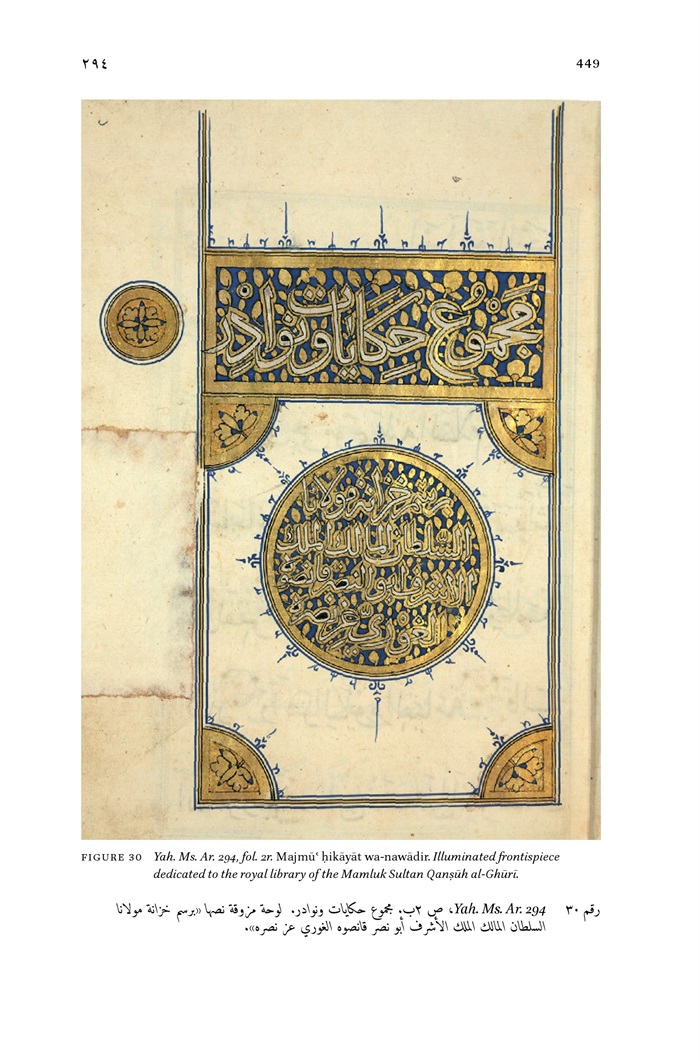 ٢٩٤
449
مجموع حكايات ونوادر
برسم خزانة مولانا
السلطان المالك الملك
الاشرف ابو النصر قانصوه
الغوري عز نصره
FIGURE 30 Yah. Ms. Ar. 294, fol. 2r. Majmūʿ ḥikāyāt wa-nawādir. Illuminated frontispiece
dedicated to the royal library of the Mamluk Sultan Qanṣūh al-Ghūrī.
رقم ٣٠ Yah. Ms. Ar. 294، ص ٢ب. مجموع حكايات ونوادر. لوحة مزوقة نصها «برسم خزانة مولانا
السلطان المالك الملك الأشرف أبو نصر قانصوه الغوري عز نصره».